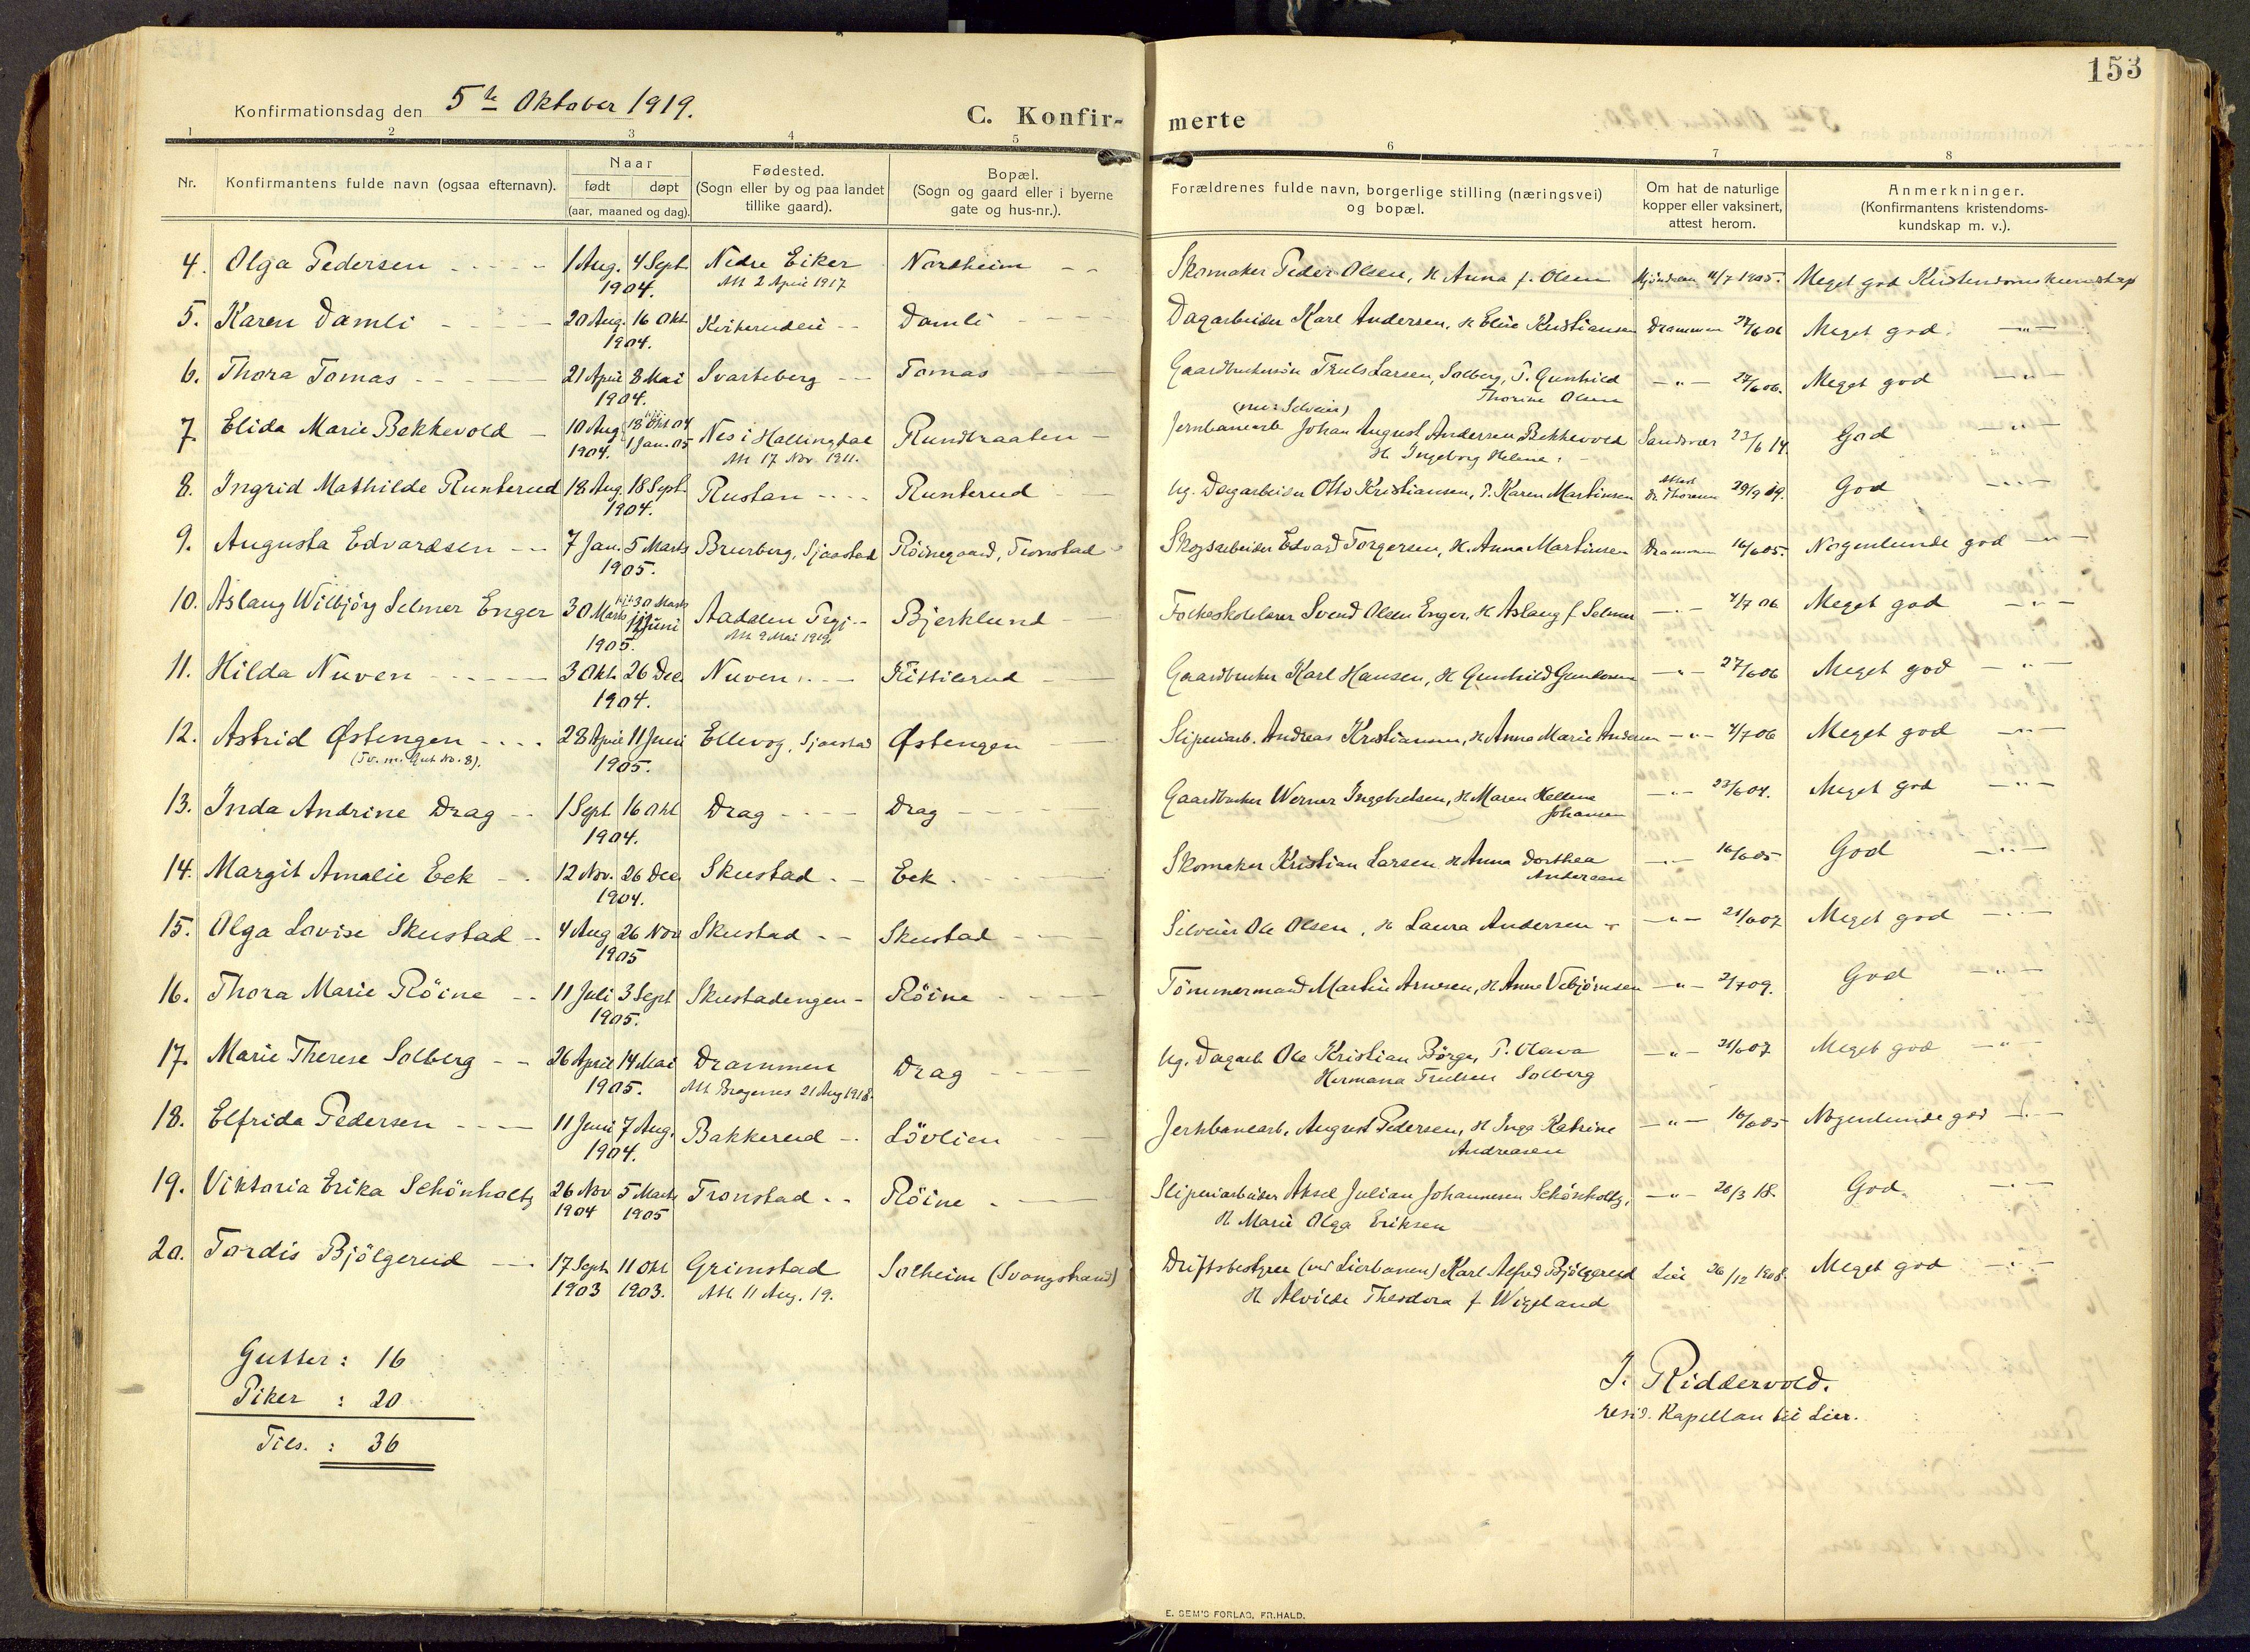 153
Konfirmationsdag den 5te Oktober 1919.
C. Konfir-merte
1 2 3 4 5 6 7 8
Nr.
Konfirmantens fulde navn (ogsaa efternavn).
Naar
født døpt
(aar, maaned og dag).
Fødested.
(Sogn eller by og paa landet
tillike gaard).
Bopæl.
(Sogn og gaard eller i byerne
gate og hus-nr.).
Forældrenes fulde navn, borgerlige stilling (næringsvei)
og bopæl.
Om hat de naturlige
kopper eller vaksinert,
attest herom.
Anmerkninger.
(Konfirmantens kristendoms-
kundskap m. v.).
4. Olga Pedersen 1 Aug. 4 Sept. Nedre Eiker Nordheim Skomaker Peder Olsen, H Anna f. Olsen Mjöndalen 11/7 1905. Meget god Kristendomskundskap
1904. Att 2 April 1917
5. Karen Damli 20 Aug. 16 Okt Kviterudeie Damli Dagarbeider Karl Andersen, H Elise Kristiansen Drammen 27/6 06 Meget god —"—
1904.
6. Thora Tomas 21 April 8 Mai Svarteberg Tomas Gaardbrukersön Truls Larsen, Solberg, P. Gunhild —"— 27/6 06. Meget god —"—
1904. Thorine Olsen
(nu: Selveier)
7. Elida Marie Bekkevold 10 Aug. 18 Okt 04 Nes i Hallingdal Rundbraaten Jernbanearb Johan August Andersen Bekkevold Sandsvær 23/6 14. God —"—
1904. 1 Jan. 05 Att 17 Nov 1911. H. Ingeborg Helene
8. Ingrid Mathilde Runterud 18 Aug. 18 Sept. Rustan Runterud Ug. Dagarbeider Otto Kristiansen, P. Karen Martinsen Attest Dr. Thoresen 29/9 19. God —"—
1904.
9. Augusta Edvardsen 7 Jan. 5 Marts Bruerberg, Sjaastad Röinegaard, Tronstad Skogsarbeider Edvard Torgersen, H. Anna Martinsen Drammen 16/6 05. Nogenlunde god —"—
1905.
10. Aslaug Wilbjörg Selmer Enger 30 Marts 30 Marts Aadalen Prgj. Bjerklund Folkeskolelærer Svend Olsen Enger, H Aslaug f Selmer —"— 4/7 06 Meget god —"—
11 Juni
1905. Att 9 Mai 1919.
11. Hilda Nuven 3 Okt. 26 Dec. Nuven Kittilsrud Gaardbruker Karl Hansen, H Gunhild Gundersen —"— 27/6 06 Meget god —"—
1904.
12. Astrid Østengen 28 April 11 Juni Ellevog, Sjaastad Østengen Sliperiarb. Andreas Kristiansen, H Anna Marie Andersen —"— 4/7 06 Meget god —"—
(Tv. m. Gut No. 8). 1905.
13. Inda Andrine Drag 1 Sept. 16 Okt Drag Drag Gaardbruker Werner Ingebretsen, H Maren Hellene —"— 23/6 04. Meget god —"—
1904. Johansen
14. Margit Amalie Eek 12 Nov. 26 Dec Skustad Eek Skomaker Kristian Larsen H Anna Dorthea —"— 16/6 05 God —"—
1904. Andersen
15. Olga Lovise Skustad 4 Aug 26 Nov Skustad Skustad Selveier Ole Olsen, H Laura Andersen —"— 21/6 07 Meget god —"—
1905
16. Thora Marie Röine 11 Juli 3 Sept Skustadengen Röine Tömmermand Martin Arnesen, H Anne Vebjörnsen —"— 2/7 09. God —"—
1905.
17. Marie Therese Solberg 26 April 14 Mai Drammen Drag Ug. Dagarb. Ole Kristian Börge, P. Olava —"— 21/6 07 Meget god —"—
1905. Att Bragernes 21 Aug 1918. Hermana Trulsen Solberg
18. Elfrida Pedersen 11 Juni 7 Aug. Bakkerud Lövlien Jernbanearb. August Pedersen, H Inga Katrine —"— 16/6 05 Nogenlunde god —"—
1904. Andreasen
19. Viktoria Erika Schönholtz 26 Nov 5 Marts Tronstad Röine Sliperiarbeider Aksel Julian Johannesen Schönholtz, —"— 20/3 18. God. —"—
1904 1905 H Marie Olga Eriksen
20. Tordis Bjölgerud 17 Sept 11 Okt Grimstad Solheim (Svangstrand) Driftsbestyrer (ved Lierbanen) Karl Alfred Bjölgerud Lier 26/12 1908. Meget god —"—
1903 1903. Att. 11 Aug. 19. H. Alvilde Theodora f Wigeland
Gutter: 16
Piker : 20
Tils. : 36
J. Riddervold.
resid. Kapellan til Lier.
E. SEM'S FORLAG, FR.HALD.